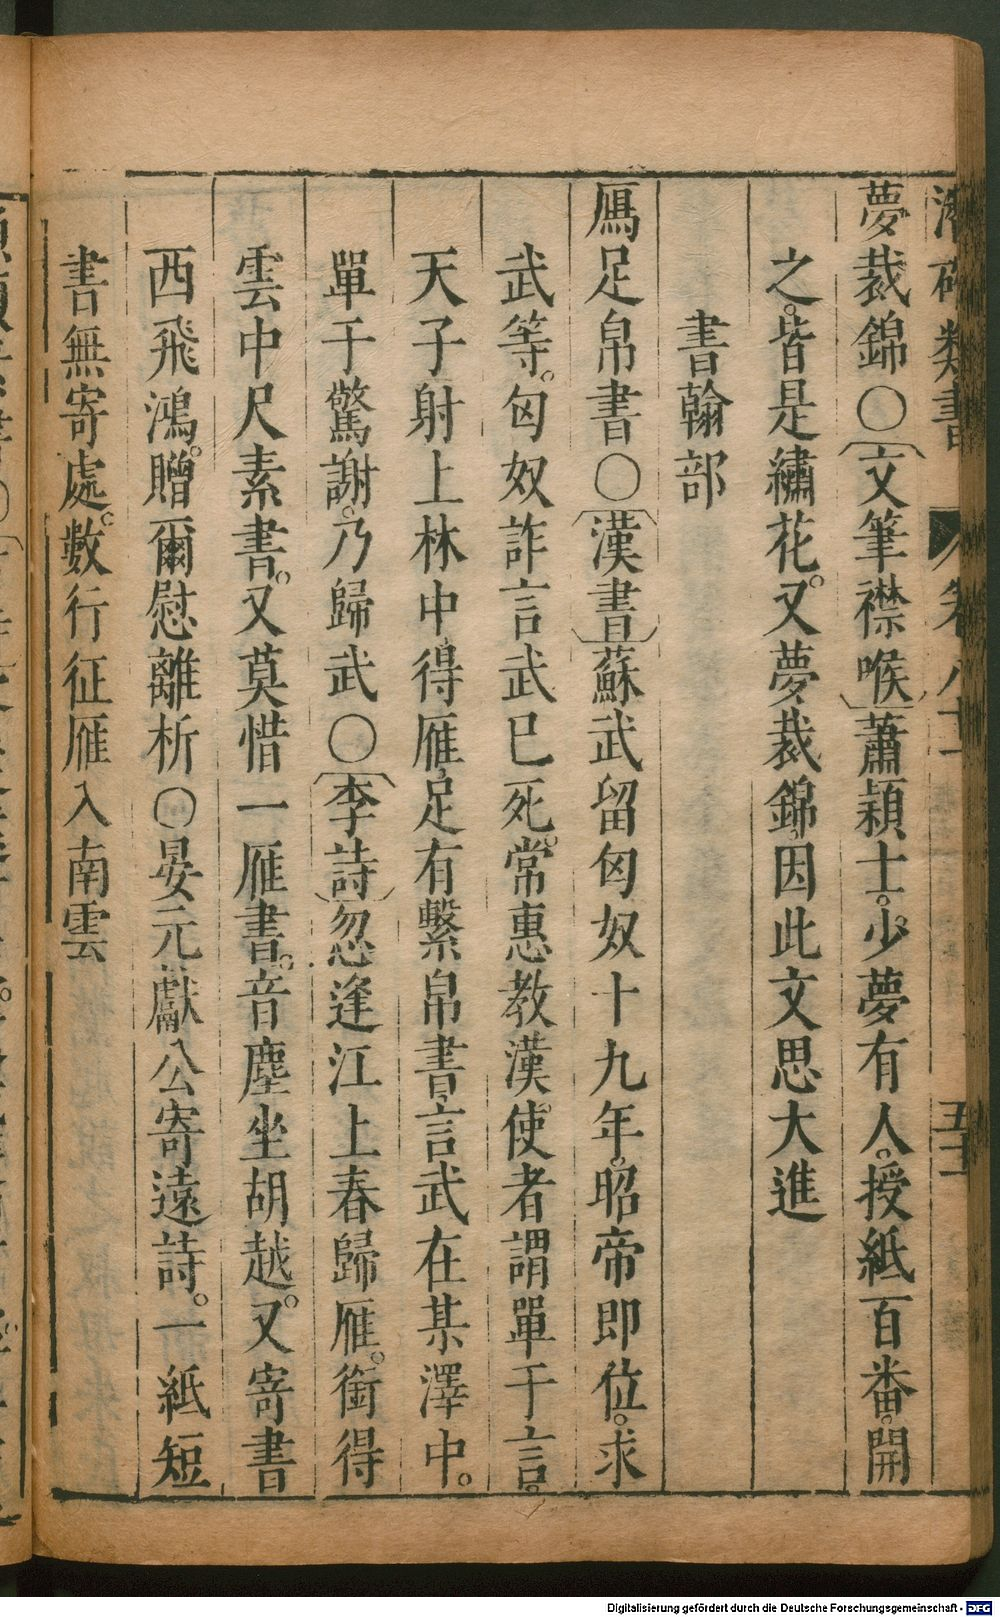 類書
夢裁錦○文筆襟喉蕭頴士。少夢有人。授紙百番。開
之。皆是繡花。又夢裁錦。因此文思大進
書翰部
鴈足帛書○漢書蘇武留匈奴十九年。昭帝即位。求
武等。匈奴詐言武已死。常惠教漢使者謂單于言。
天子射上林中。得雁足有繫帛書。言武在某澤中。
單于驚謝。乃歸武○李詩忽逢江上春歸雁。銜得
雲中尺素書。又莫惜一雁書。音塵坐胡越。又寄書
西飛鴻。贈爾慰離析○晏元獻公寄遠詩。一紙短
書無寄處。數行征雁入南雲
Digitalisierung gefördert durch die Deutsche Forschungsgemeinschaft - DFG